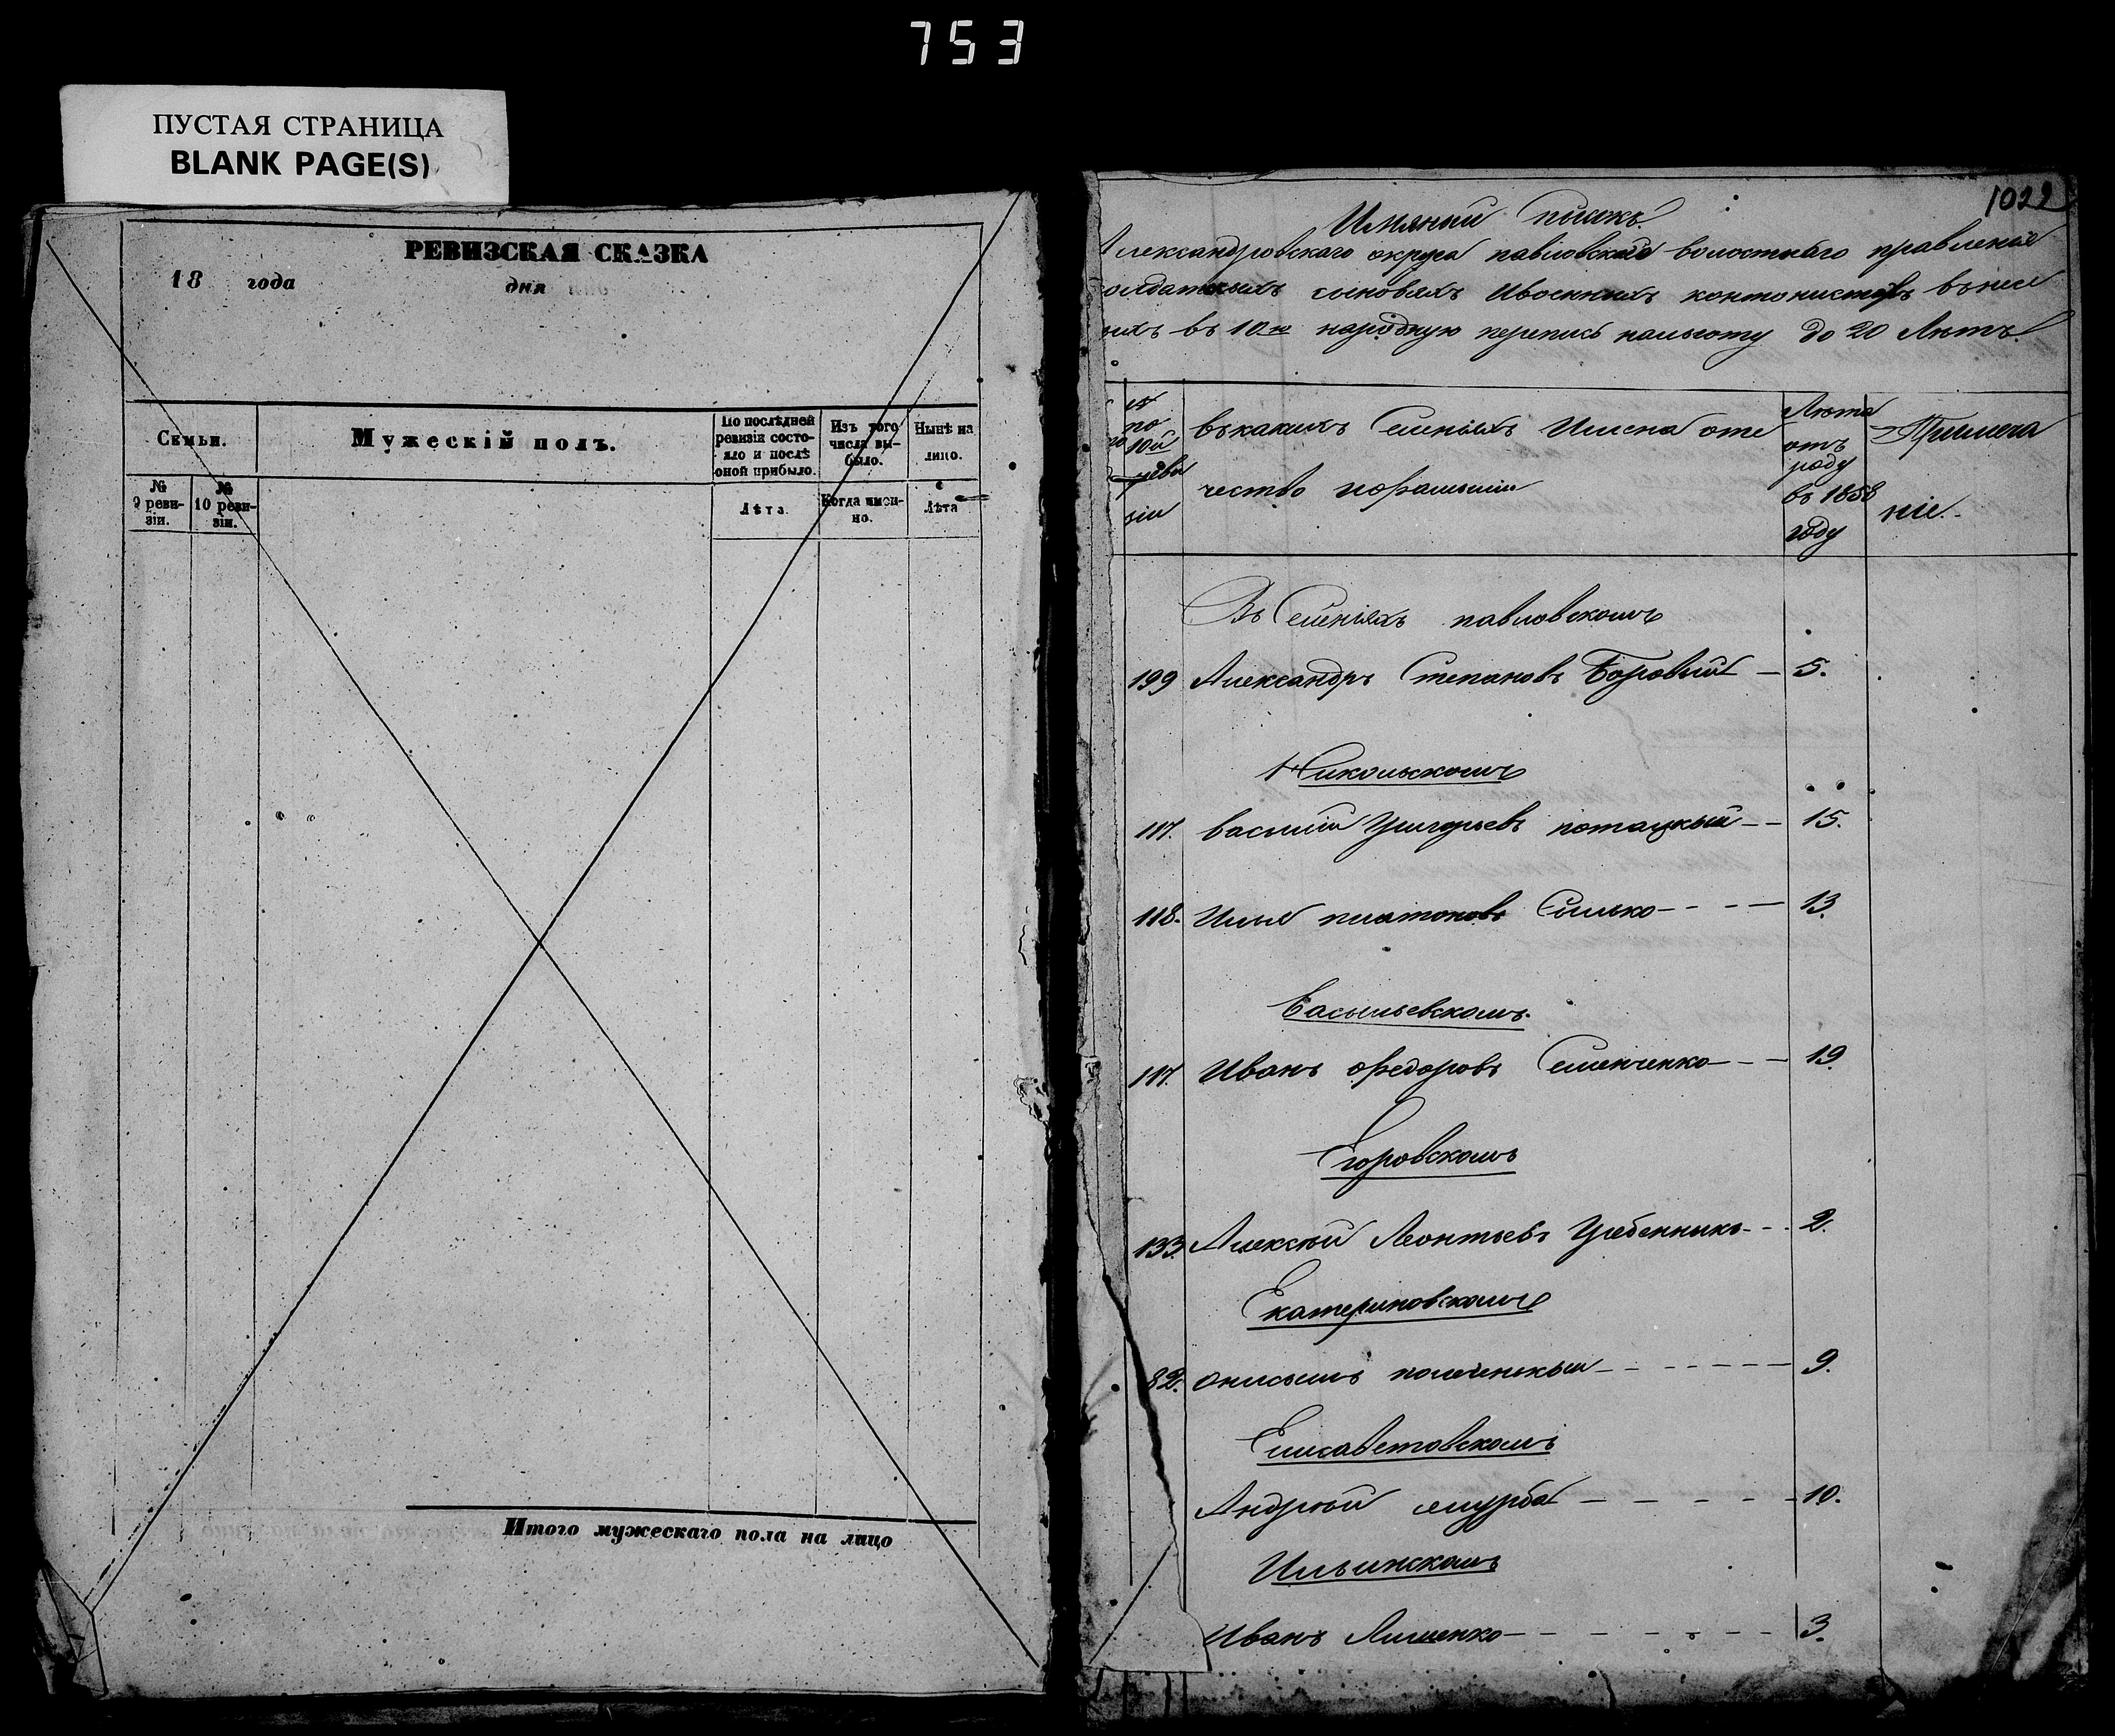 753
ПУСТАЯ СТРАНИЦА
BLANK PAGE(S)
РЕВИЗСКАЯ СКАЗКА
18 года дня
Семьи.
Мужескій полъ.
По послѣдней ревизіи состояло и послѣ оной прибыло.
Изъ того числа выбыло.
Нынѣ на лицо.
№ 9 ревизіи.
№ 10 ревизіи.
Лѣта.
Когда именно.
Лѣта
Итого мужескаго пола на лицо
1022
Имяный
Александровскаго округа павловскаго волостнаго правленія
солдатскихъ сыновяхъ Ивоенныхъ контонистовъ
въ 10ю народную перепись до 20 Лѣтъ
по 10й реви зіи
въкакихъ Селеніяхъ Имена оте
чество ифамыліи
Лѣта отъ роду въ 1858 году
Примеча
ніе.
Въ Селеніяхъ павловскомъ
199 Александръ Степановъ Боровый — 5.
Никольскомъ
117. василій Григорьевъ потацкый — 15.
118. Илья платоновъ Силько — 13.
Васыльевскомъ
117. Иванъ Федоровъ Семенченко — 19
Егоровскомъ
133. Алексѣй Леонтьевъ Гребенныкъ — 2.
Екатериновскомъ
82. Онисымъ — 9.
Елисаветовскомъ
Андрѣй — 10.
Ильинскомъ
Иванъ Лишенко — 3.